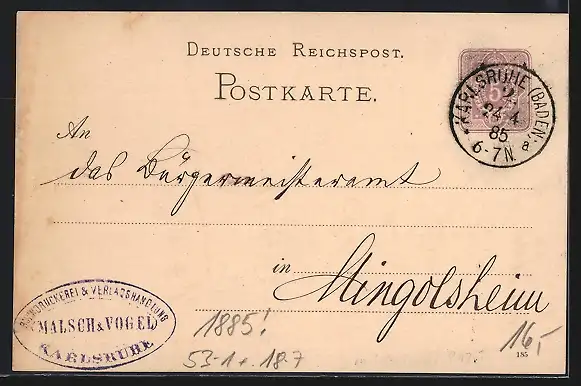 DEUTSCHE REICHSPOST.
POSTKARTE.
KARLSRUHE (BADEN)
2.
24 4
85
6-7N.
a
An
das Bürgermeisteramt
in
Mingolsheim
BUCHDRUCKEREI & VERLAGSHANDLUNG
MALSCH & VOGEL
KARLSRUHE
1885!
53-1 + 18·7
16,-
185